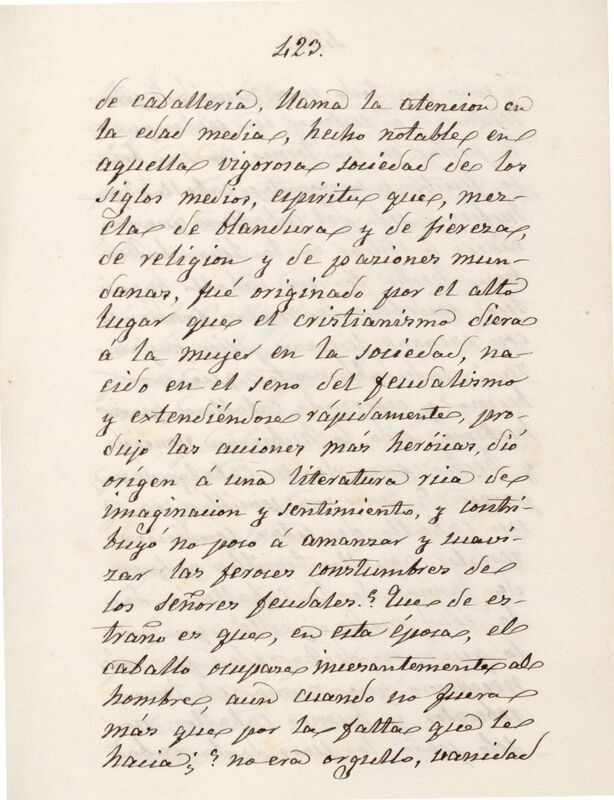 423.
de caballería, llama la atencion en
la edad media, hecho notable en
aquella vigorosa sociedad de los
siglos medios, espíritu que, mez-
cla de blandura y de fiereza,
de religion y de pasiones mun-
danas, fué originado por el alto
lugar que el cristianismo diera
á la mujer en la sociedad, na-
cido en el seno del feudalismo
y extendiéndose rápidamente, pro-
dujo las acciones más heróicas, dió
orígen á una literatura rica de
imaginacion y sentimiento, y contri-
buyó no poco á amanzar y suavi-
zar las feroces constumbres de
los señores feudales.? Que de es-
traño es que, en esta época, el
caballo ocupara incesantemente al
hombre, aun cuando no fuera
más que por la falta que le
hacia;? no era orgullo, vanidad